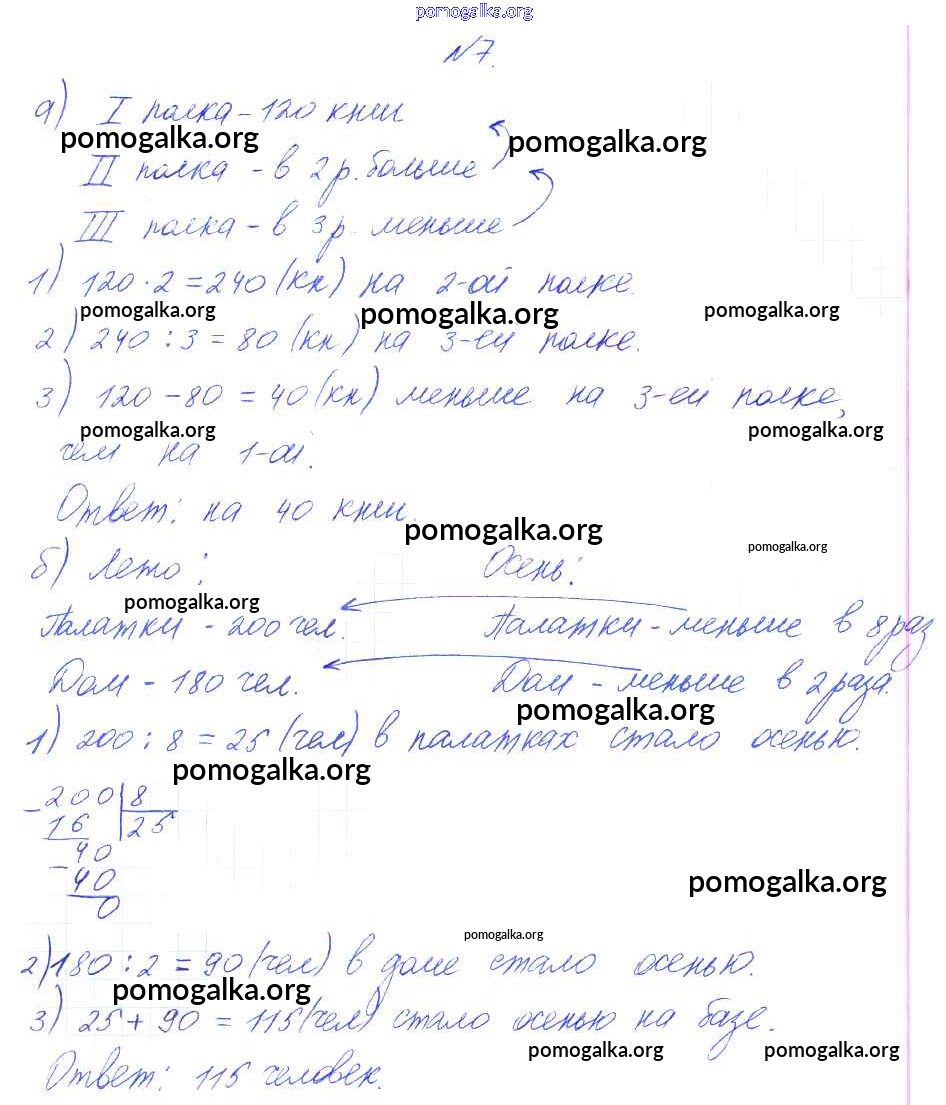 pomogalka.org
№7.
а) I полка - 120 книг
pomogalka.org pomogalka.org
II полка - в 2 р. больше
III полка - в 3 р. меньше
1) 120 · 2 = 240 (кн) на 2-ой полке.
pomogalka.org pomogalka.org pomogalka.org
2) 240 : 3 = 80 (кн) на 3-ей полке.
3) 120 - 80 = 40 (кн) меньше на 3-ей полке,
pomogalka.org pomogalka.org
чем на 1-ой.
Ответ: на 40 книг.
pomogalka.org
pomogalka.org
б) Лето: Осень:
pomogalka.org
Палатки - 200 чел. Палатки - меньше в 8 раз
Дом - 180 чел. Дом - меньше в 2 раза.
pomogalka.org
1) 200 : 8 = 25 (чел) в палатках стало осенью.
pomogalka.org
- 200 8
16 25
- 40
40
0
pomogalka.org
pomogalka.org
2) 180 : 2 = 90 (чел) в доме стало осенью.
pomogalka.org
3) 25 + 90 = 115 (чел) стало осенью на базе.
pomogalka.org pomogalka.org
Ответ: 115 человек.